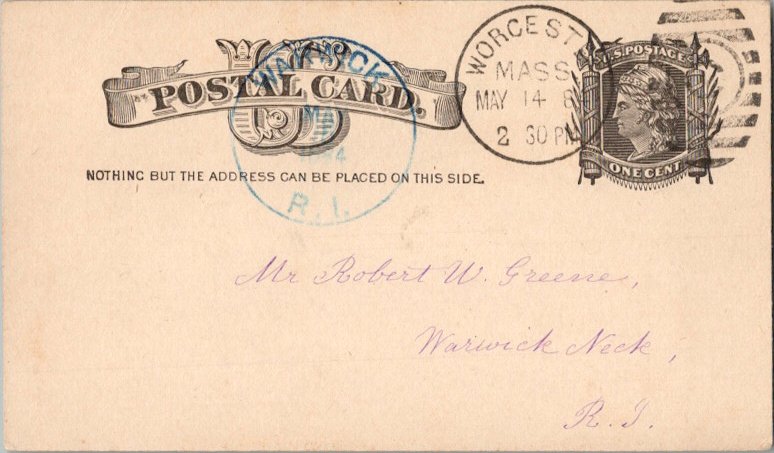 US
POSTAL CARD.
NOTHING BUT THE ADDRESS CAN BE PLACED ON THIS SIDE.
WARWICK
R.I.
WORCEST
MASS
MAY 14 8
2 30 PM
U.S. POSTAGE
ONE CENT
Mr Robert W. Greene,
Warwick Neck,
R.I.